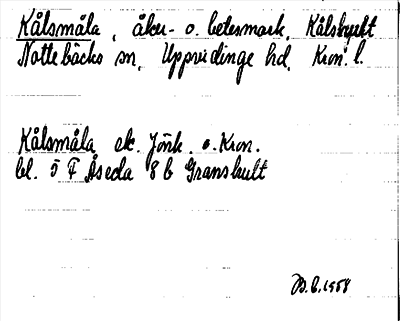 Kålsmåla, åker- o. betesmark, Kålshyckt
Nottebäcks sn, Uppvidinge hd, Kron. l.
Kålsmåla ek. Jönk. o. Kron.
bl. 5 F Åseda 8 b Granshult
B.C. 1958